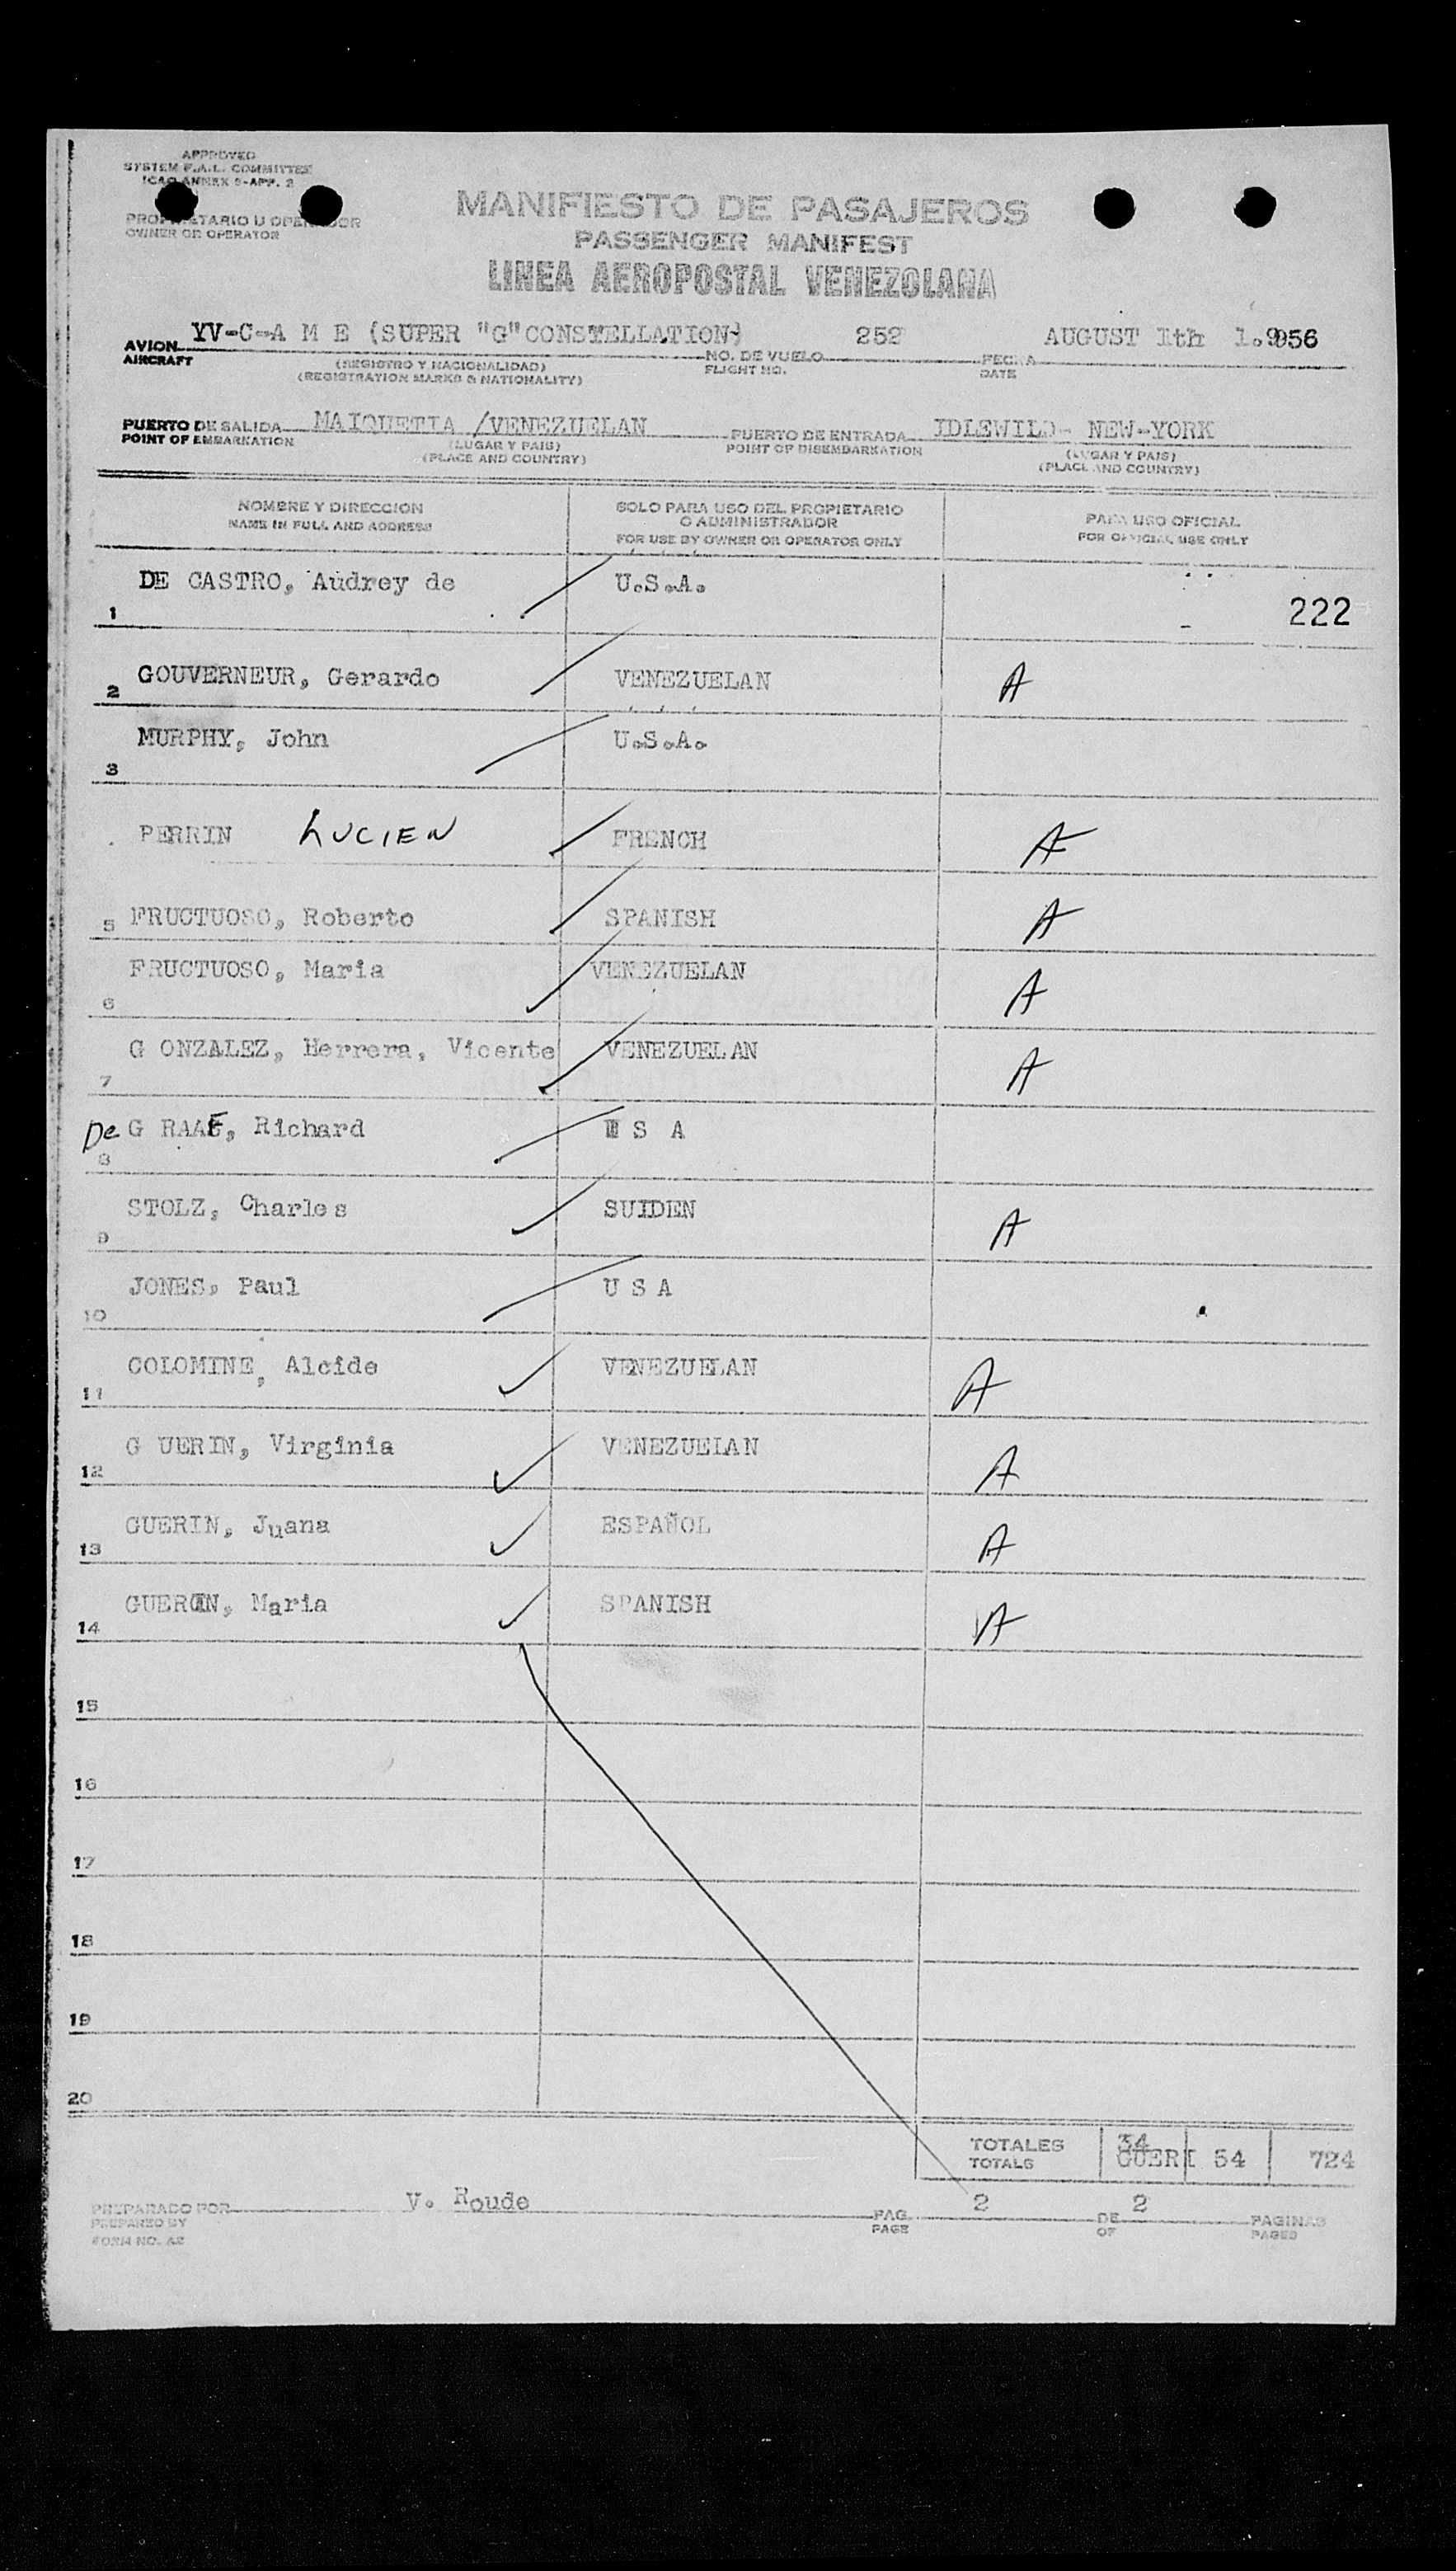 APPROVED
SYSTEM F.A.L. COMMITTEE
ICAO ANNEX 9-APP. 2
PROPIETARIO U OPERADOR
OWNER OR OPERATOR
MANIFIESTO DE PASAJEROS
PASSENGER MANIFEST
LINEA AEROPOSTAL VENEZOLANA
AVION YV-C-A M E (SUPER "G" CONSTELLATION) NO. DE VUELO 252 FECHA AUGUST 1th 1.956
AIRCRAFT (REGISTRO Y NACIONALIDAD) FLIGHT NO. DATE
(REGISTRATION MARKS & NATIONALITY)
PUERTO DE SALIDA MAIQUETIA /VENEZUELAN PUERTO DE ENTRADA IDLEWILD- NEW-YORK
POINT OF EMBARKATION (LUGAR Y PAIS) POINT OF DISEMBARKATION (LUGAR Y PAIS)
(PLACE AND COUNTRY) (PLACE AND COUNTRY)
NOMBRE Y DIRECCION SOLO PARA USO DEL PROPIETARIO PARA USO OFICIAL
NAME IN FULL AND ADDRESS O ADMINISTRADOR FOR OFFICIAL USE ONLY
FOR USE BY OWNER OR OPERATOR ONLY
1 DE CASTRO, Audrey de U.S.A. 222
2 GOUVERNEUR, Gerardo VENEZUELAN A
3 MURPHY, John U.S.A.
PERRIN LUCIEN FRENCH A
5 FRUCTUOSO, Roberto SPANISH A
6 FRUCTUOSO, Maria VENEZUELAN A
7 G ONZALEZ, Herrera, Vicente VENEZUELAN A
8 De G RAAF, Richard U S A
9 STOLZ, Charles SUIDEN A
10 JONES, Paul U S A
11 COLOMINE, Alcide VENEZUELAN A
12 G UERIN, Virginia VENEZUELAN A
13 GUERIN, Juana ESPAÑOL A
14 GUERIN, Maria SPANISH A
15
16
17
18
19
20
TOTALES 34
TOTALS GUERI 54 724
PREPARADO POR V. Roude PAG. 2 DE 2 PAGINAS
PREPARED BY PAGE OF PAGES
FORM NO. A2